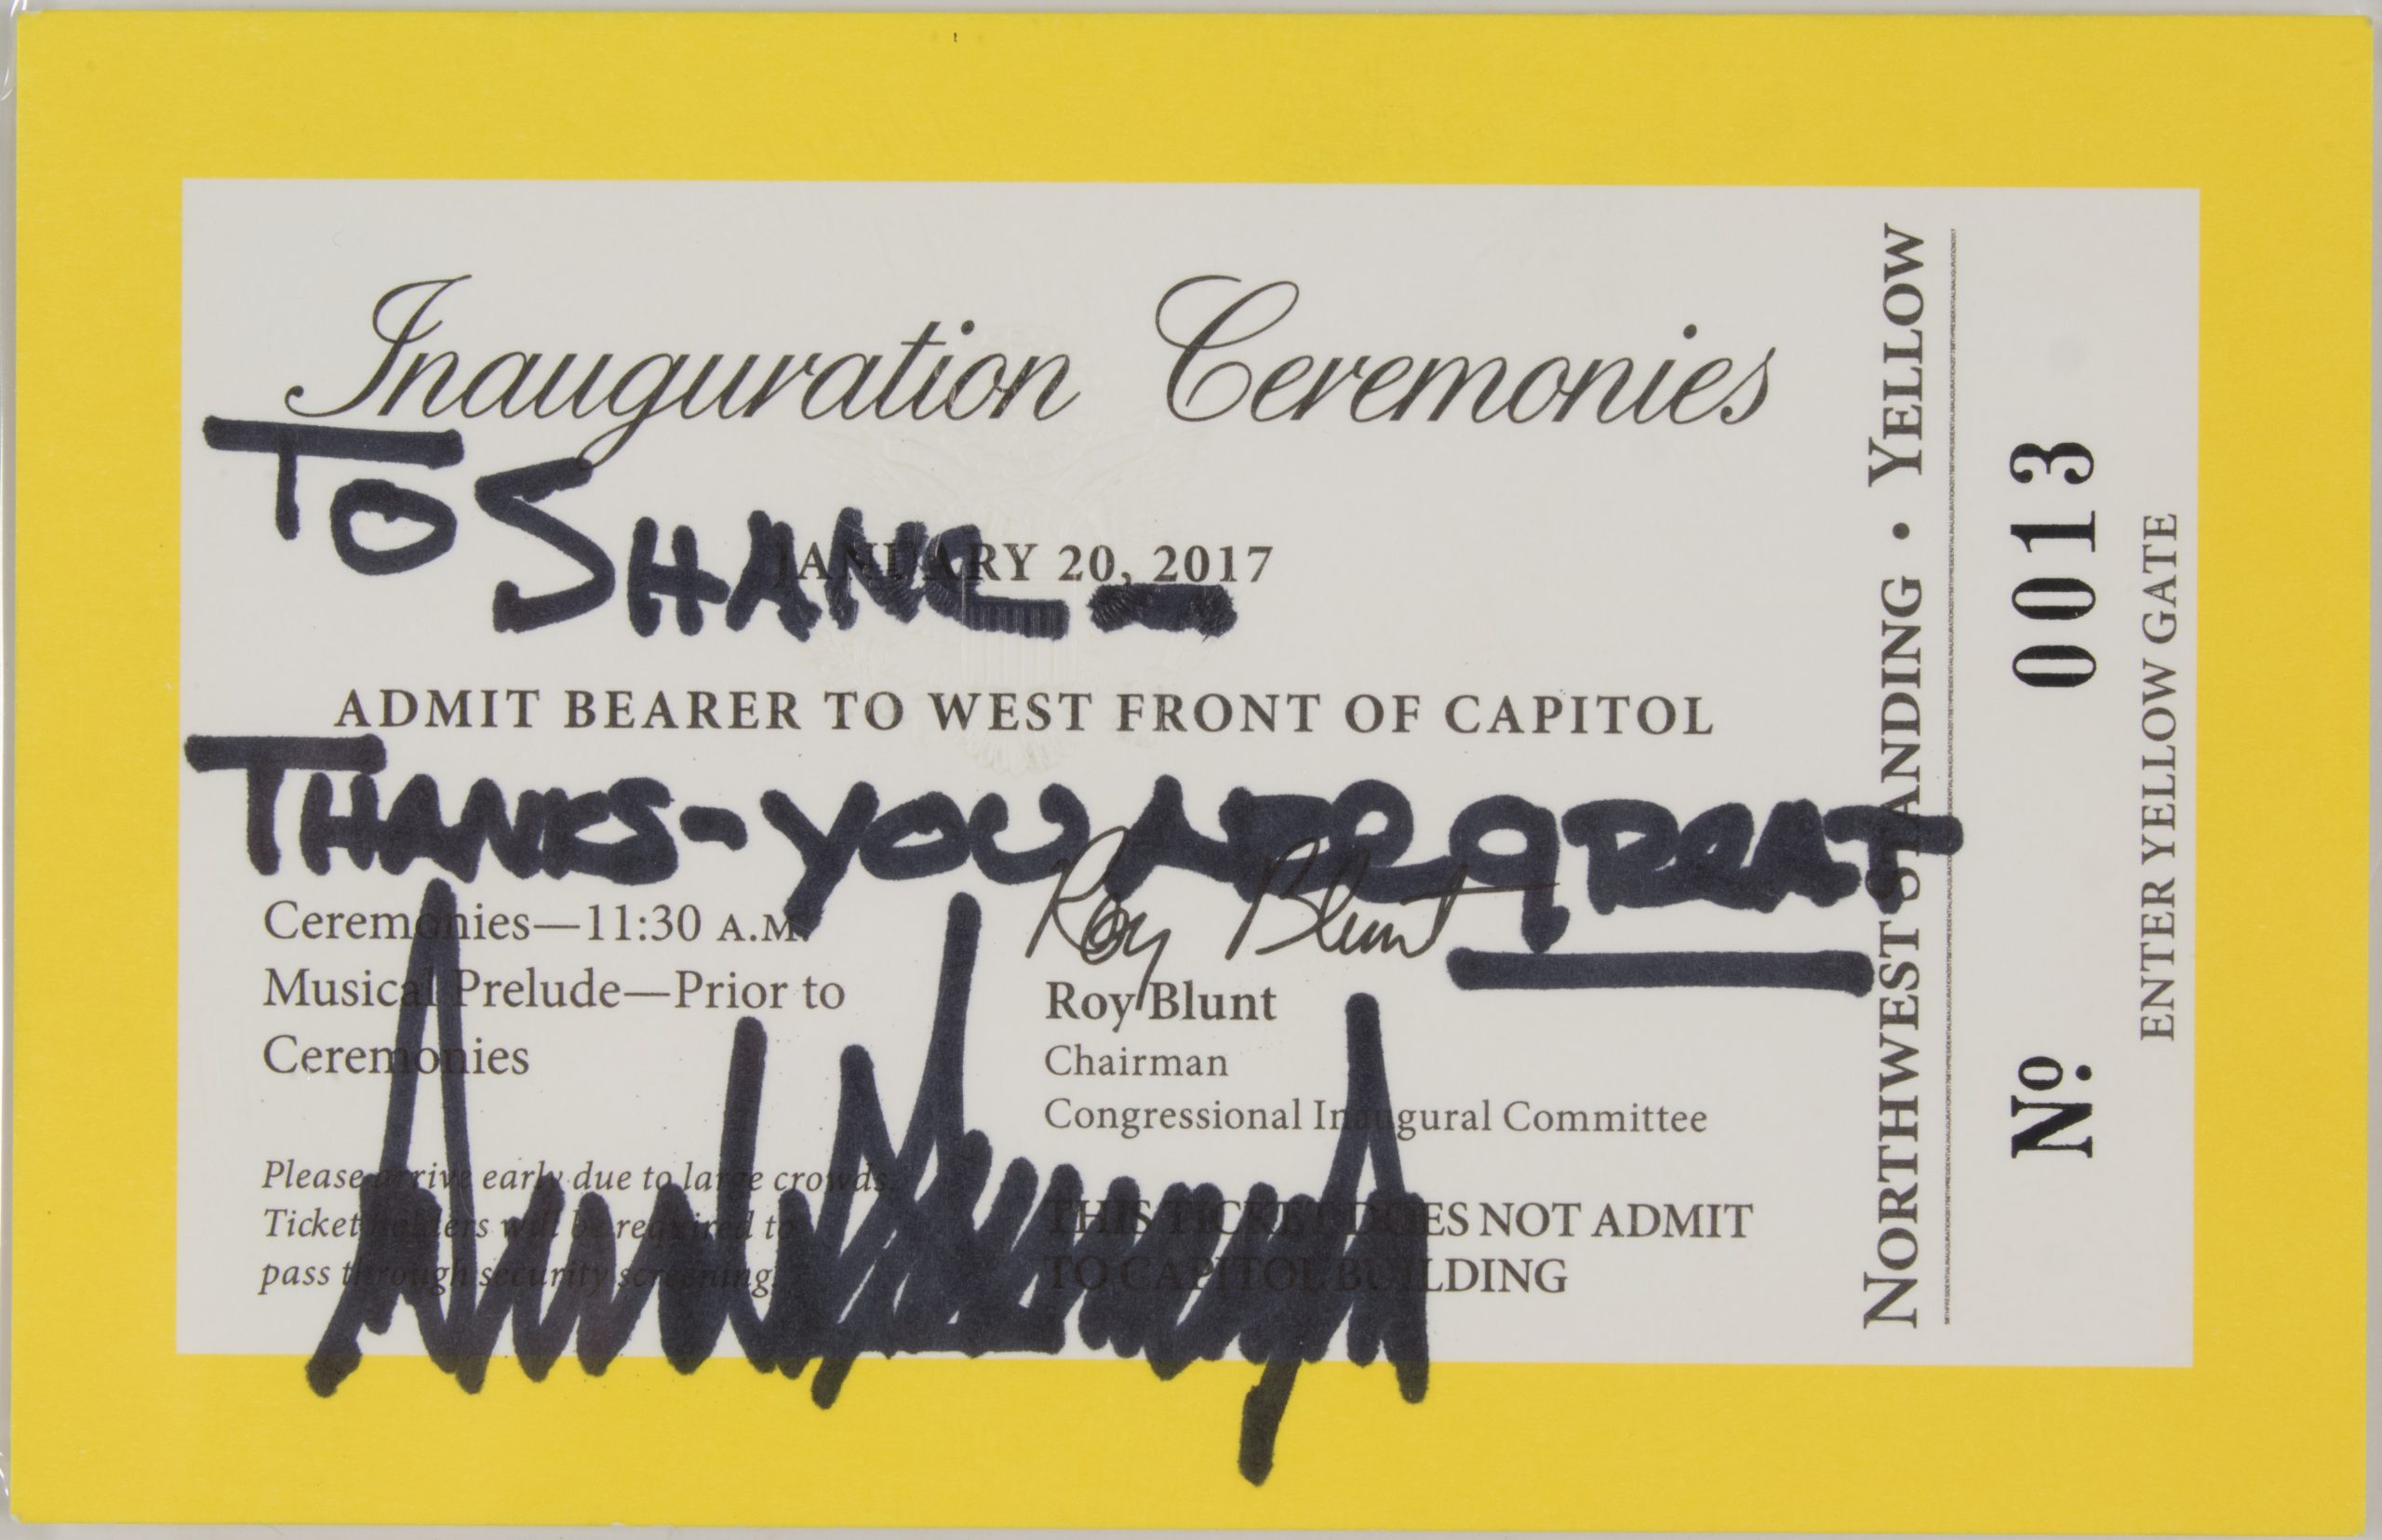 Inauguration Ceremonies
TO SHANE –
JANUARY 20, 2017
ADMIT BEARER TO WEST FRONT OF CAPITOL
THANKS – YOU ARE GREAT
Ceremonies—11:30 A.M.
Musical Prelude—Prior to
Ceremonies
Please arrive early due to large crowds.
Ticket holders will be required to
pass through security screening.
Roy Blunt
Roy Blunt
Chairman
Congressional Inaugural Committee
THIS TICKET DOES NOT ADMIT
TO CAPITOL BUILDING
NORTHWEST STANDING • YELLOW
No. 0013
ENTER YELLOW GATE